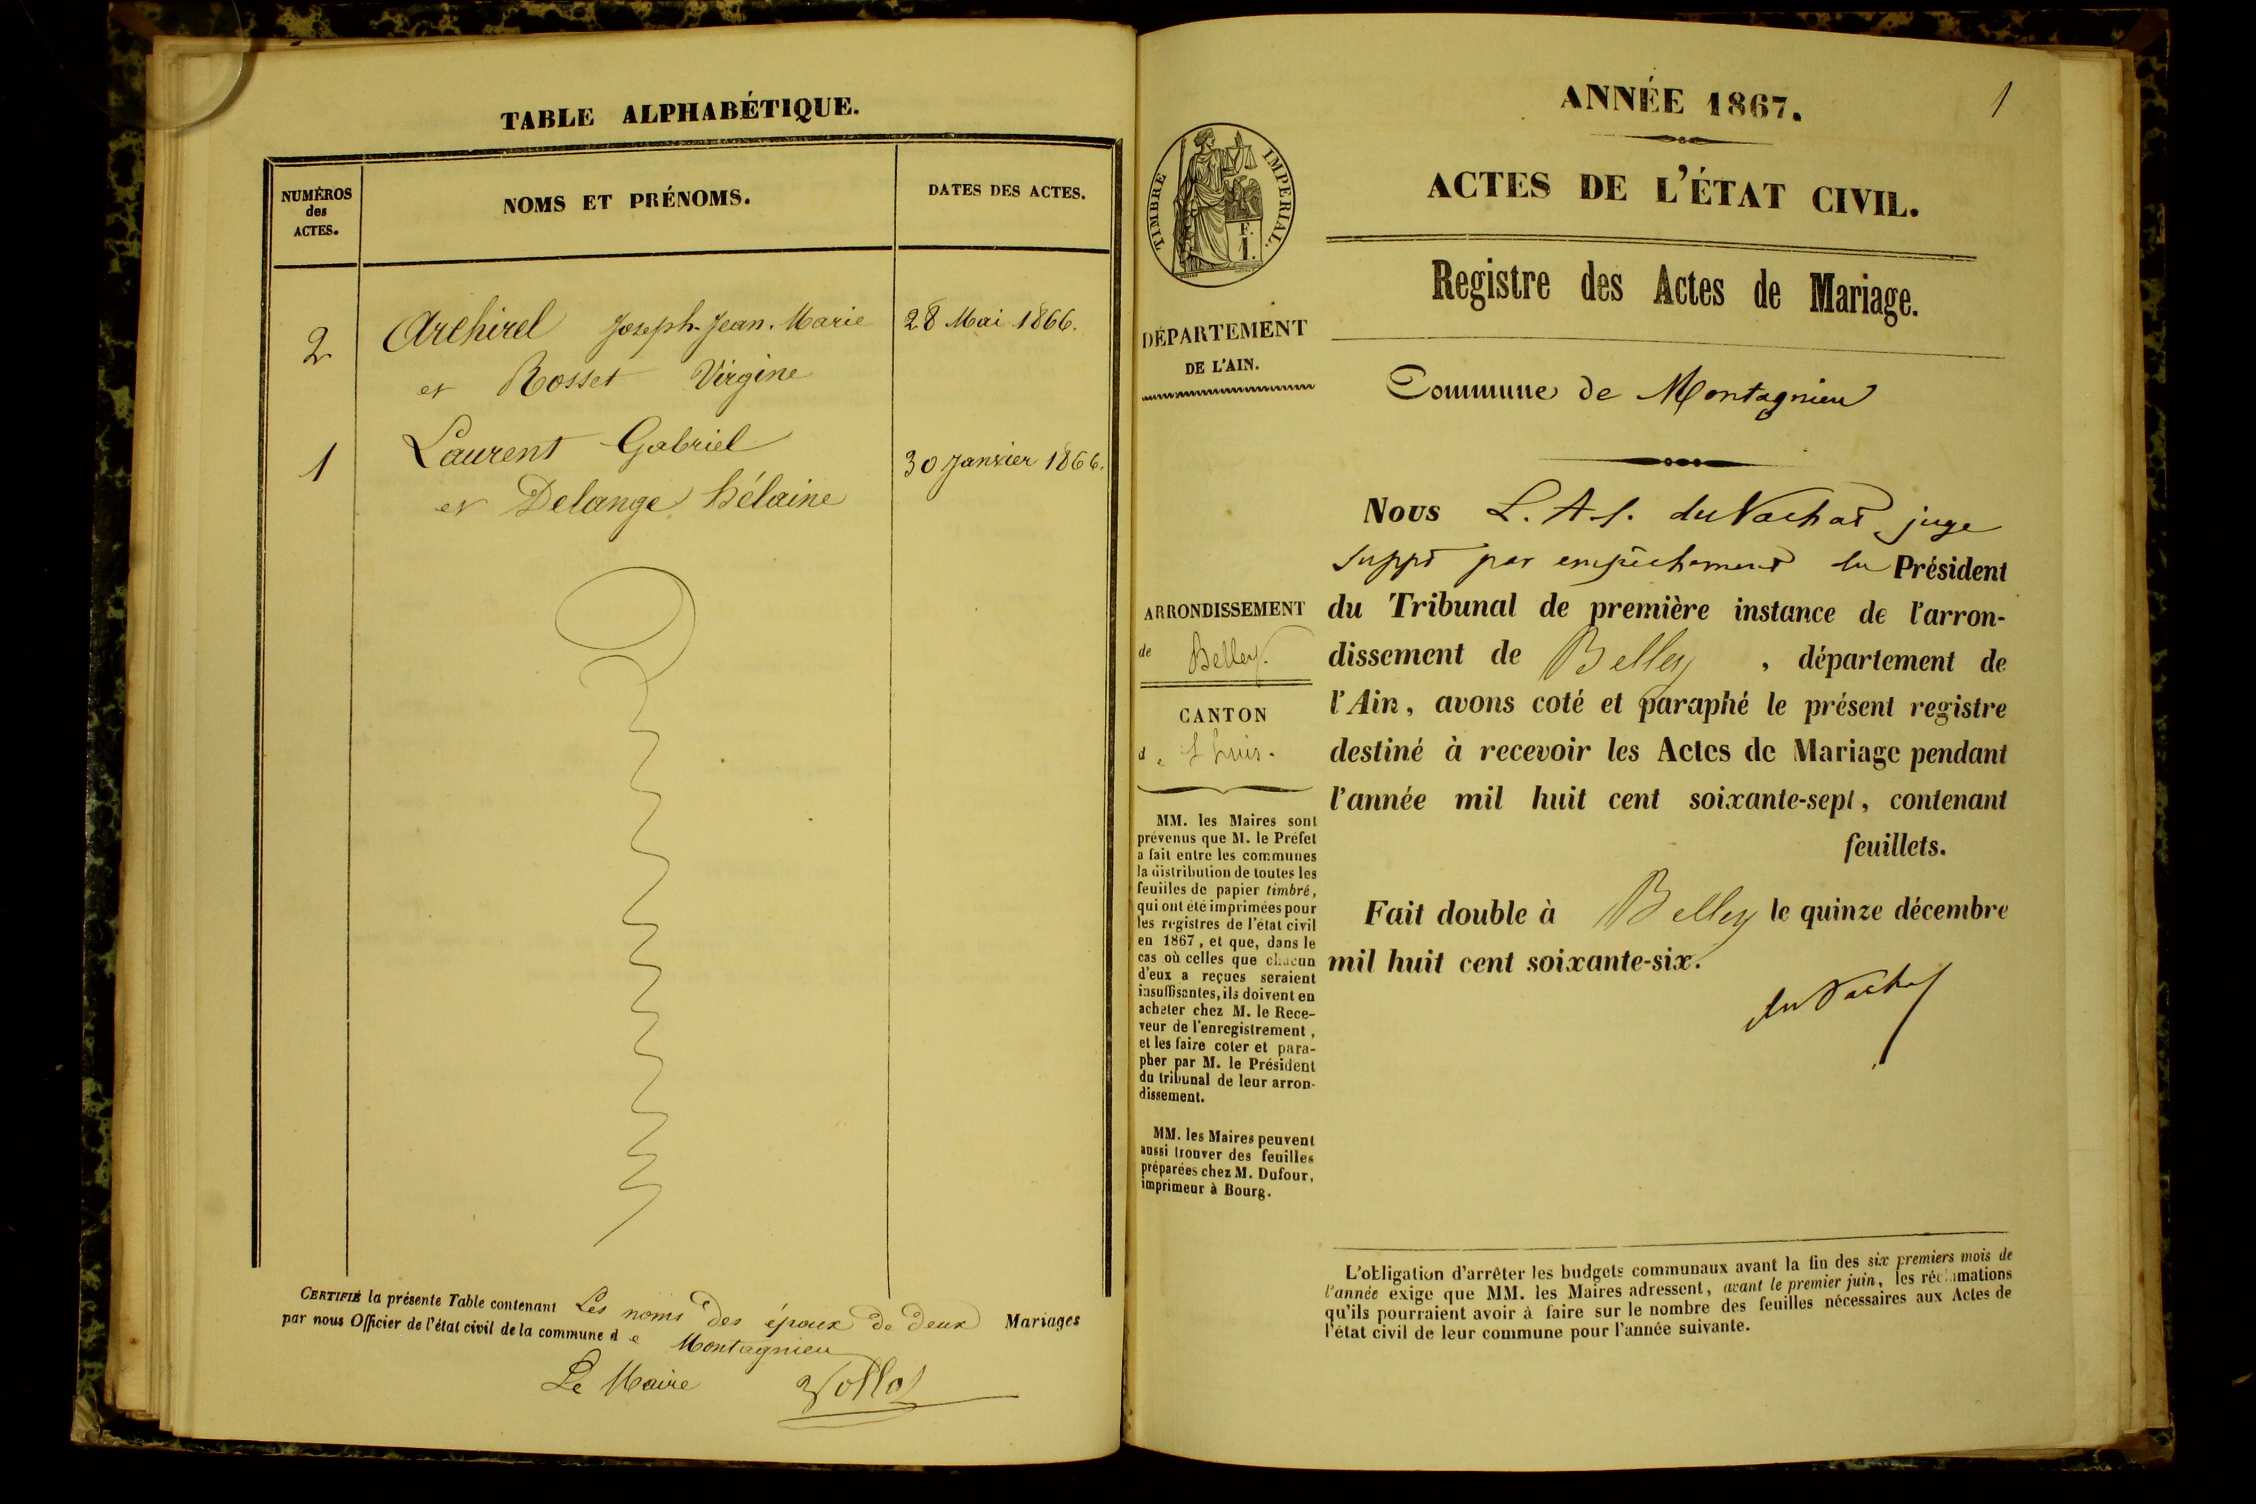 TABLE ALPHABÉTIQUE.
NUMÉROS
des
ACTES.
NOMS ET PRÉNOMS.
DATES DES ACTES.
2
Archirel Joseph-Jean-Marie
28 Mai 1866.
et Rosset Virgine
1
Laurent Gabriel
30 Janvier 1866.
et Delange hélaine
CERTIFIÉ la présente Table contenant Les noms des époux de deux Mariages
par nous Officier de l'état civil de la commune d e Montagnieu
Le Maire
1
ANNÉE 1867.
ACTES DE L'ÉTAT CIVIL.
TIMBRE IMPERIAL.
F.
1.
Registre des Actes de Mariage.
DÉPARTEMENT
DE L'AIN.
Commune de Montagnieu
Nous L. A. du Vachat juge
suppt par empêchement du Président
du Tribunal de première instance de l'arron-
dissement de Belley, département de
l'Ain, avons coté et paraphé le présent registre
destiné à recevoir les Actes de Mariage pendant
l'année mil huit cent soixante-sept, contenant
feuillets.
Fait double à Belley le quinze décembre
mil huit cent soixante-six.
du Vachat
ARRONDISSEMENT
de Belley.
CANTON
d e Lhuis.
MM. les Maires sont
prévenus que M. le Préfet
a fait entre les communes
la distribution de toutes les
feuilles de papier timbré,
qui ont été imprimées pour
les registres de l'état civil
en 1867, et que, dans le
cas où celles que chacun
d'eux a reçues seraient
insuffisantes, ils doivent en
acheter chez M. le Rece-
veur de l'enregistrement,
et les faire coter et para-
pher par M. le Président
du tribunal de leur arron-
dissement.
MM. les Maires peuvent
aussi trouver des feuilles
préparées chez M. Dufour,
imprimeur à Bourg.
L'obligation d'arrêter les budgets communaux avant la fin des six premiers mois de
l'année exige que MM. les Maires adressent, avant le premier juin, les réclamations
qu'ils pourraient avoir à faire sur le nombre des feuilles nécessaires aux Actes de
l'état civil de leur commune pour l'année suivante.